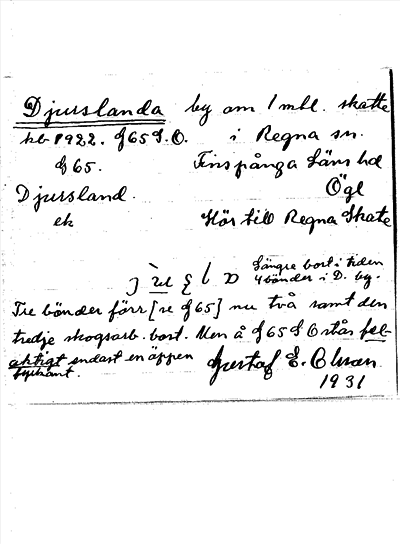 Djurslanda by om 1 mtl. skatte
kb 1922. G65 S.O. i Regna sn.
G 65. Finspånga Läns hd
Djursland. Ögl
ek Hör till Regna Skate
Längre bort i tiden
4 bönder i D. by.
Tre bönder förr [se G65] nu två samt den
tredje skogsarb. bost. Men å G65 S O står fel-
aktigt endast en öppen
fyrkant.
Gustaf E. Olsson
1931